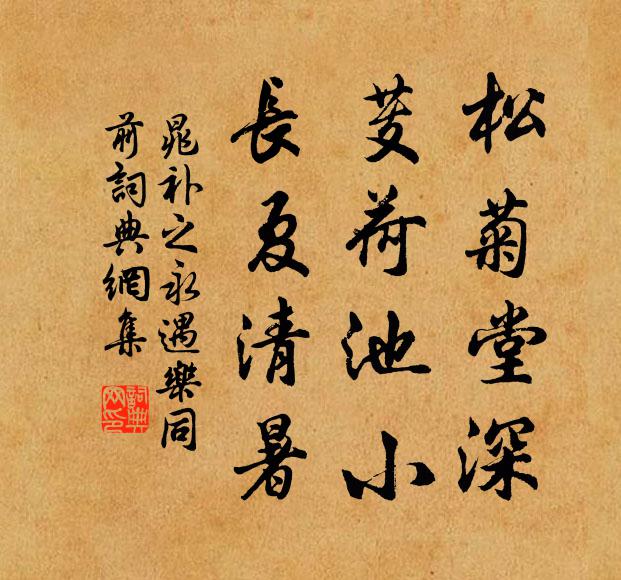 松菊堂深
芰荷池小
長夏清暑
晁补之永遇樂同
前詞典網集
詞典网印